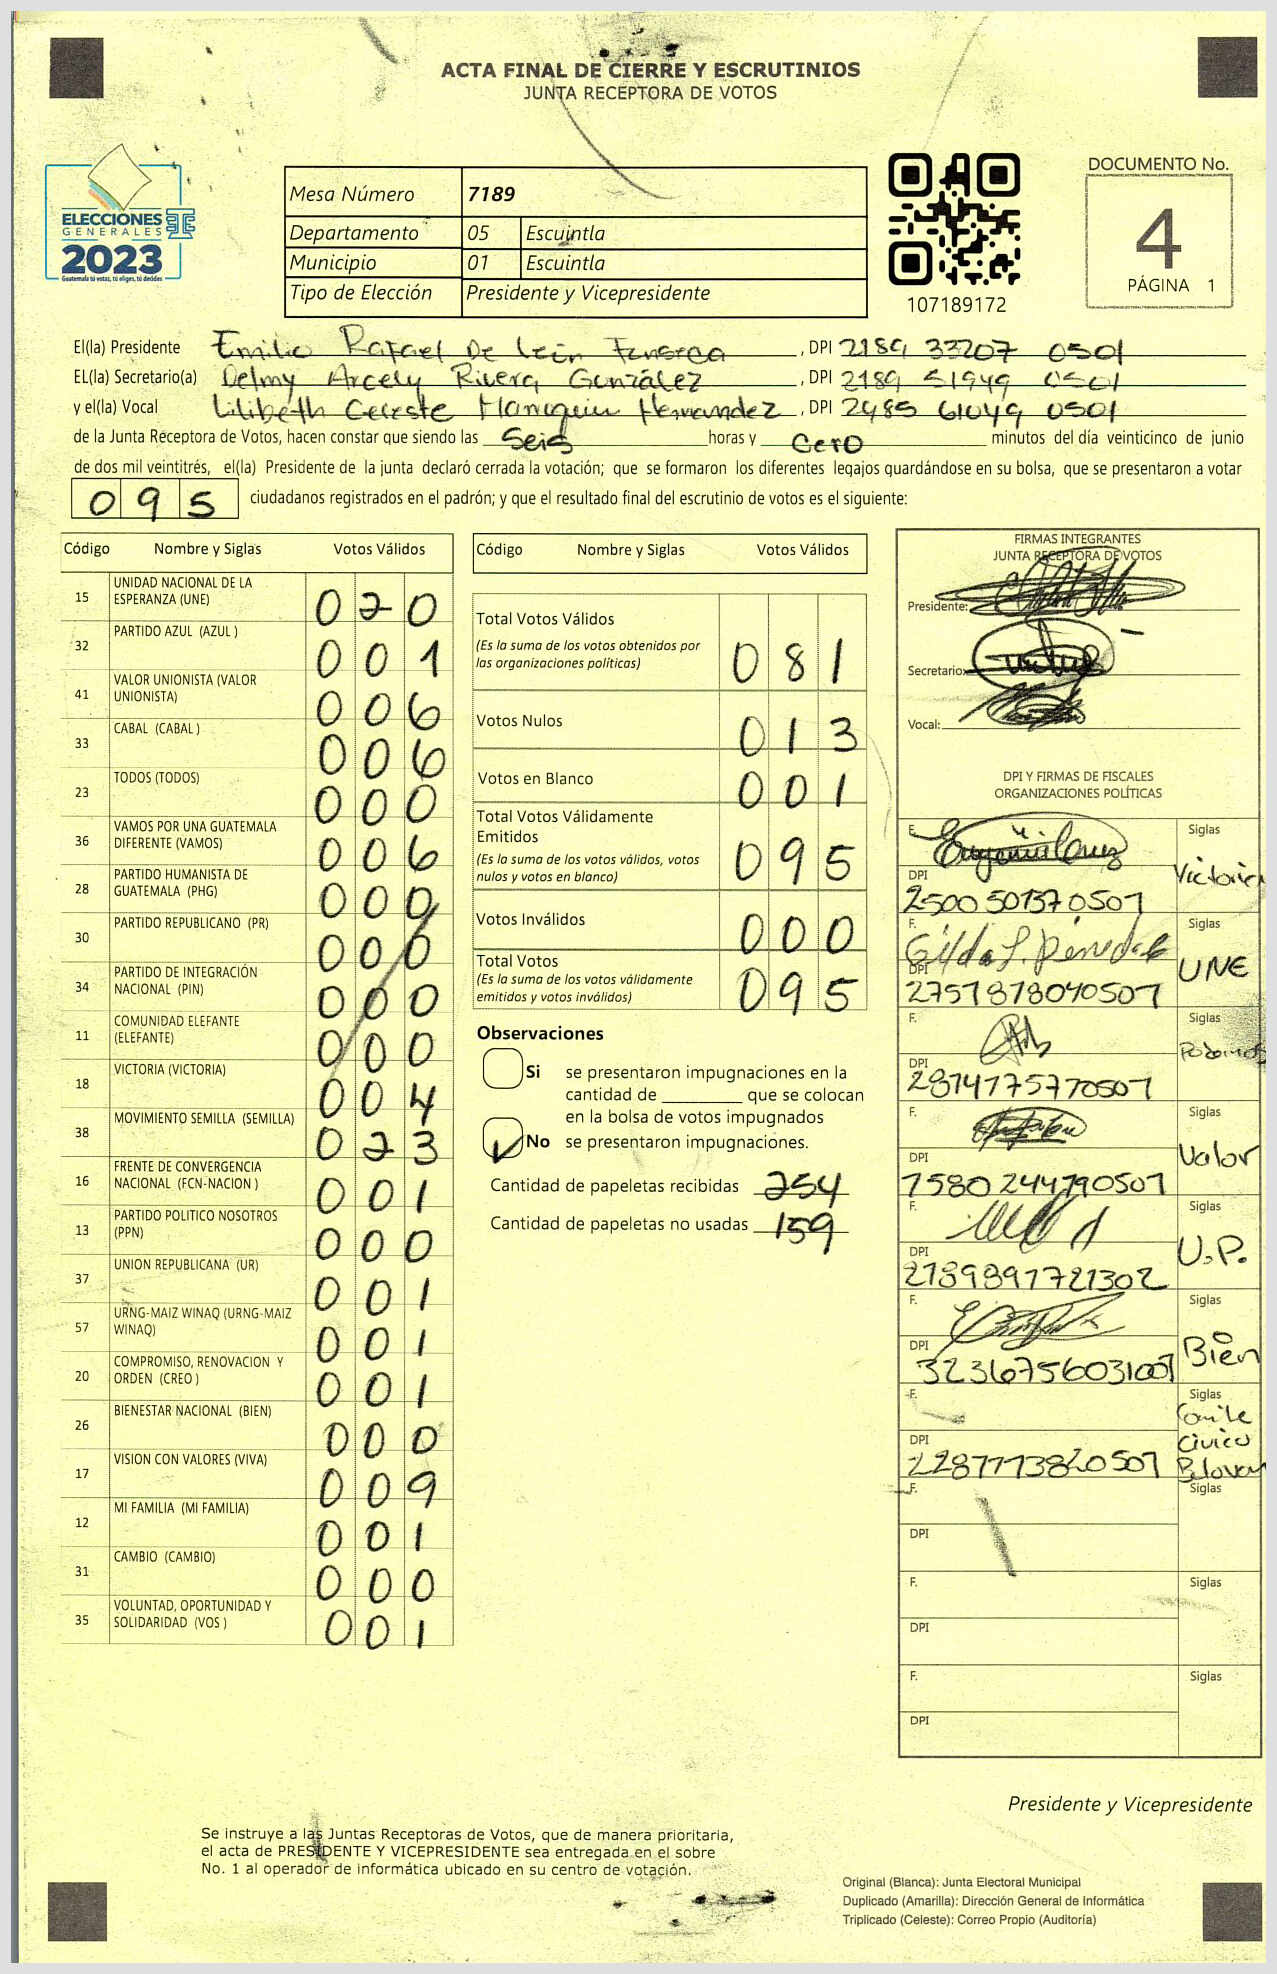 ACTA FINAL DE CIERRE Y ESCRUTINIOS
JUNTA RECEPTORA DE VOTOS
ELECCIONES
GENERALES
2023
Guatemala tú votas, tú eliges, tú decides
Mesa Número 7189
Departamento 05 Escuintla
Municipio 01 Escuintla
Tipo de Elección Presidente y Vicepresidente
107189172
DOCUMENTO No.
4
PÁGINA 1
El(la) Presidente Emilio Rafael De León Fonseca, DPI 2189 33207 0501
EL(la) Secretario(a) Delmy Arcely Rivera González, DPI 2189 51949 0501
y el(la) Vocal Lilibeth Celeste Hernandez, DPI 2485 61049 0501
de la Junta Receptora de Votos, hacen constar que siendo las Seis horas y Cero minutos del día veinticinco de junio
de dos mil veintitrés, el(la) Presidente de la junta declaró cerrada la votación; que se formaron los diferentes legajos guardándose en su bolsa, que se presentaron a votar
095 ciudadanos registrados en el padrón; y que el resultado final del escrutinio de votos es el siguiente:
Código Nombre y Siglas Votos Válidos
15 UNIDAD NACIONAL DE LA ESPERANZA (UNE) 020
32 PARTIDO AZUL (AZUL ) 001
41 VALOR UNIONISTA (VALOR UNIONISTA) 006
33 CABAL (CABAL ) 006
23 TODOS (TODOS) 000
36 VAMOS POR UNA GUATEMALA DIFERENTE (VAMOS) 006
28 PARTIDO HUMANISTA DE GUATEMALA (PHG) 000
30 PARTIDO REPUBLICANO (PR) 000
34 PARTIDO DE INTEGRACIÓN NACIONAL (PIN) 000
11 COMUNIDAD ELEFANTE (ELEFANTE) 000
18 VICTORIA (VICTORIA) 004
38 MOVIMIENTO SEMILLA (SEMILLA) 023
16 FRENTE DE CONVERGENCIA NACIONAL (FCN-NACION ) 001
13 PARTIDO POLITICO NOSOTROS (PPN) 000
37 UNION REPUBLICANA (UR) 001
57 URNG-MAIZ WINAQ (URNG-MAIZ WINAQ) 001
20 COMPROMISO, RENOVACION Y ORDEN (CREO ) 001
26 BIENESTAR NACIONAL (BIEN) 000
17 VISION CON VALORES (VIVA) 009
12 MI FAMILIA (MI FAMILIA) 001
31 CAMBIO (CAMBIO) 000
35 VOLUNTAD, OPORTUNIDAD Y SOLIDARIDAD (VOS ) 001
Código Nombre y Siglas Votos Válidos
Total Votos Válidos 081
(Es la suma de los votos obtenidos por
las organizaciones políticas)
Votos Nulos 013
Votos en Blanco 001
Total Votos Válidamente
Emitidos 095
(Es la suma de los votos válidos, votos
nulos y votos en blanco)
Votos Inválidos 000
Total Votos 095
(Es la suma de los votos válidamente
emitidos y votos inválidos)
Observaciones
Si se presentaron impugnaciones en la
cantidad de ________ que se colocan
en la bolsa de votos impugnados
No se presentaron impugnaciones.
Cantidad de papeletas recibidas 254
Cantidad de papeletas no usadas 159
FIRMAS INTEGRANTES
JUNTA RECEPTORA DE VOTOS
Presidente:
Secretario:
Vocal:
DPI Y FIRMAS DE FISCALES
ORGANIZACIONES POLÍTICAS
F. Siglas Victoria
DPI 2500 50137 0501
F. Siglas UNE
DPI 2751878040501
F. Siglas Podemos
DPI 2814175770501
F. Siglas Valor
DPI 1580 244790501
F. Siglas U.P.
DPI 2189891721302
F. Siglas Bien
DPI 3236756031001
F. Siglas Comite Civico
DPI 2287773820501
F. Siglas
DPI
F. Siglas
DPI
F. Siglas
DPI
Presidente y Vicepresidente
Se instruye a las Juntas Receptoras de Votos, que de manera prioritaria,
el acta de PRESIDENTE Y VICEPRESIDENTE sea entregada en el sobre
No. 1 al operador de informática ubicado en su centro de votación.
Original (Blanca): Junta Electoral Municipal
Duplicado (Amarilla): Dirección General de Informática
Triplicado (Celeste): Correo Propio (Auditoría)